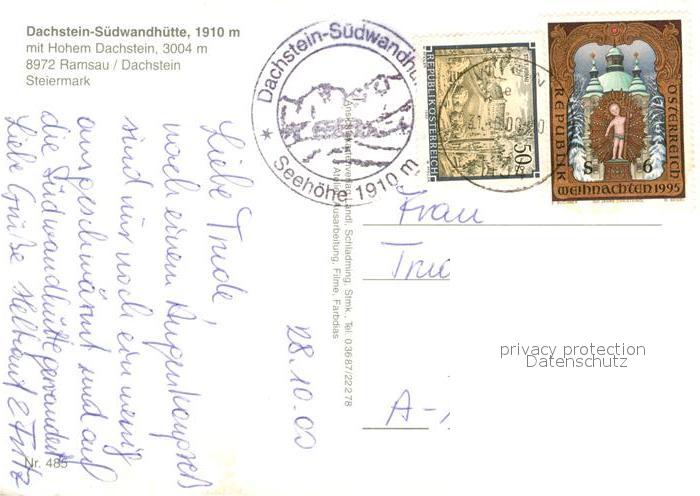 Dachstein-Südwandhütte, 1910 m
mit Hohem Dachstein, 3004 m
8972 Ramsau / Dachstein
Steiermark
Dachstein-Südwandhü
Seehöhe 1910 m
REPUBLIK ÖSTERREICH
50g
REPUBLIK
ÖSTERREICH
S 6
WEIHNACHTEN 1995
Liebe Trude,
noch einem
sind wir noch ein wenig
ausgeschwärmt und auf
die Südwandhütte gewandert
Liebe Grüße
28.10.00
Schladming, Stmk., Tel. 03687/22278
Ausarbeitung, Filme, Farbdias
Frau
Tru
A-
privacy protection
Datenschutz
Nr. 485